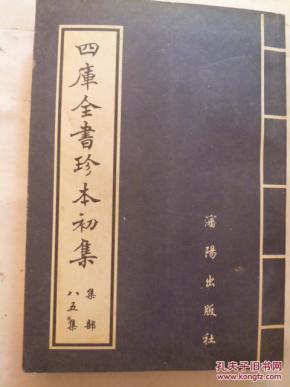 四庫全書珍本初集
集部
八五集
瀋陽出版社
孔夫子旧书网